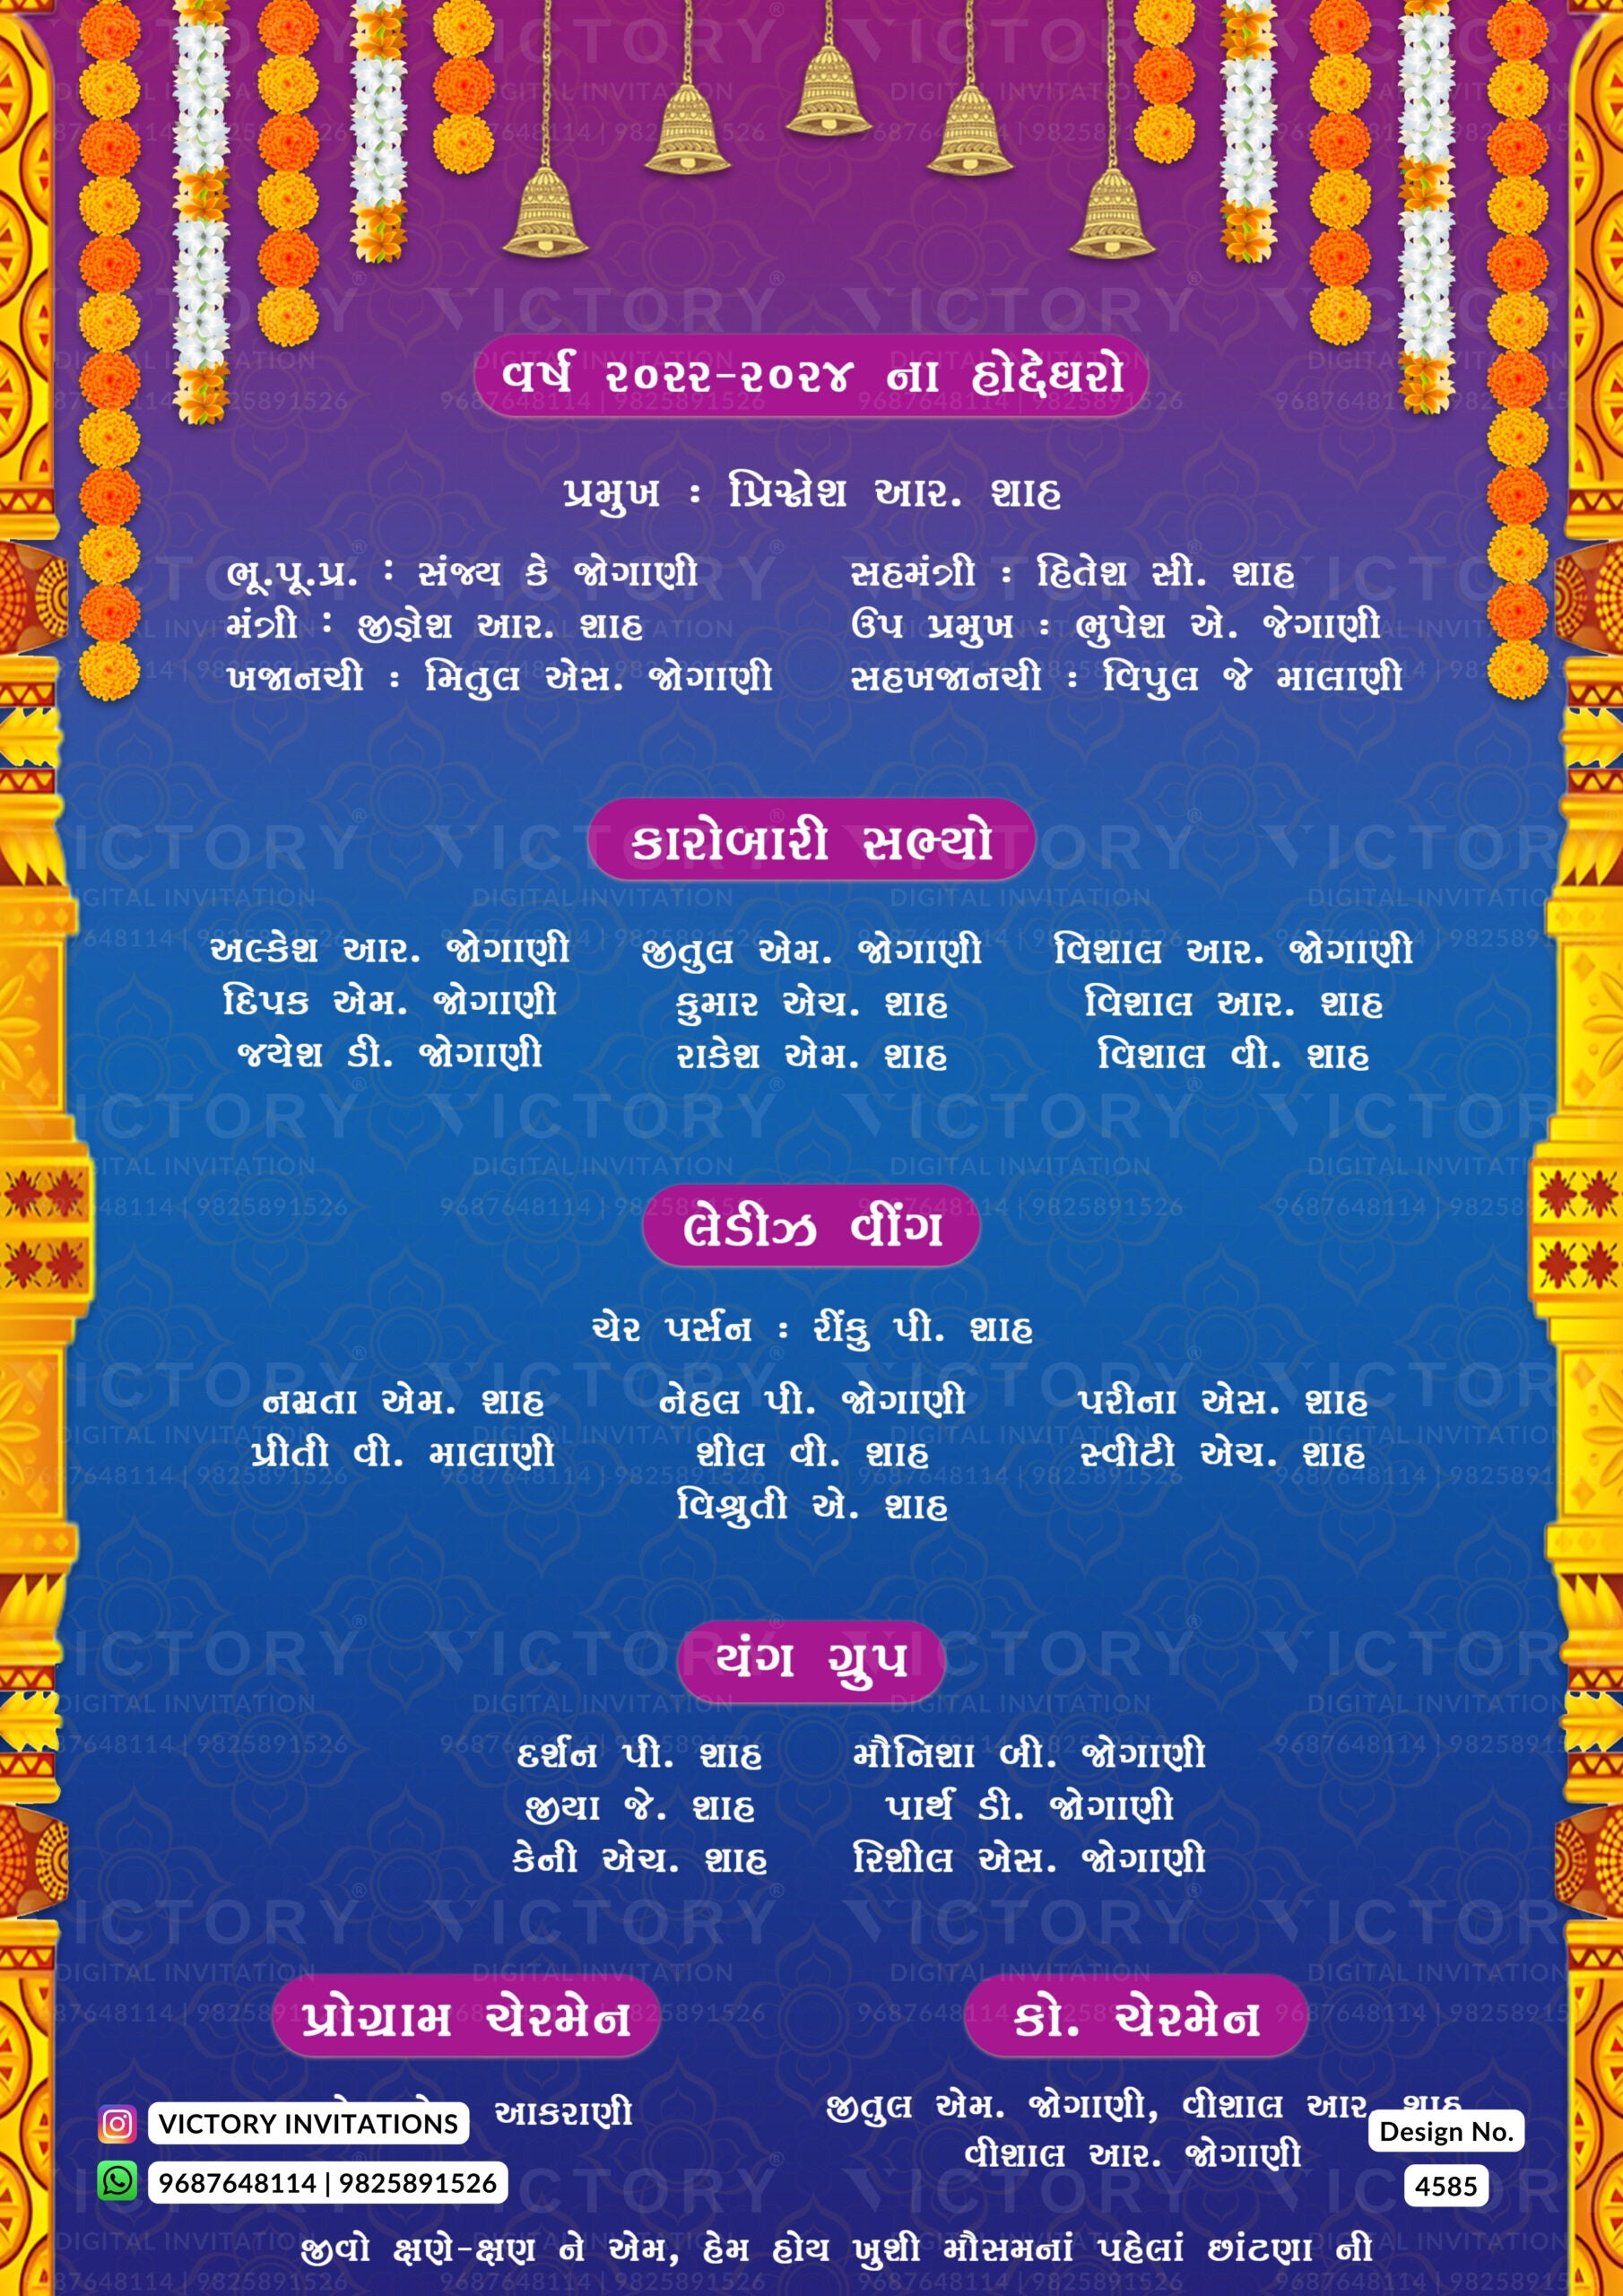 વર્ષ ૨૦૨૨-૨૦૨૪ ના હોદ્દેધરો
પ્રમુખ : પ્રિગ્નેશ આર. શાહ
ભૂ.પૂ.પ્ર. : સંજય કે જોગાણી
મંત્રી : જીજ્ઞેશ આર. શાહ
ખજાનચી : મિતુલ એસ. જોગાણી
સહમંત્રી : હિતેશ સી. શાહ
ઉપ પ્રમુખ : ભુપેશ એ. જેગાણી
સહખજાનચી : વિપુલ જે માલાણી
કારોબારી સભ્યો
અલ્કેશ આર. જોગાણી જીતુલ એમ. જોગાણી વિશાલ આર. જોગાણી
દિપક એમ. જોગાણી કુમાર એચ. શાહ વિશાલ આર. શાહ
જયેશ ડી. જોગાણી રાકેશ એમ. શાહ વિશાલ વી. શાહ
લેડીઝ વીંગ
ચેર પર્સન : રીંકુ પી. શાહ
નમ્રતા એમ. શાહ નેહલ પી. જોગાણી પરીના એસ. શાહ
પ્રીતી વી. માલાણી શીલ વી. શાહ સ્વીટી એચ. શાહ
વિશ્રુતી એ. શાહ
યંગ ગ્રુપ
દર્શન પી. શાહ મૌનિશા બી. જોગાણી
જીયા જે. શાહ પાર્થ ડી. જોગાણી
કેની એચ. શાહ રિશીલ એસ. જોગાણી
પ્રોગ્રામ ચેરમેન
આકરાણી
કો. ચેરમેન
જીતુલ એમ. જોગાણી, વીશાલ આર. શાહ
વીશાલ આર. જોગાણી
VICTORY INVITATIONS
9687648114 | 9825891526
Design No.
4585
જીવો ક્ષણે-ક્ષણ ને એમ, હેમ હોય ખુશી મૌસમનાં પહેલાં છાંટણા ની
VICTORY
DIGITAL INVITATION
9687648114 | 9825891526